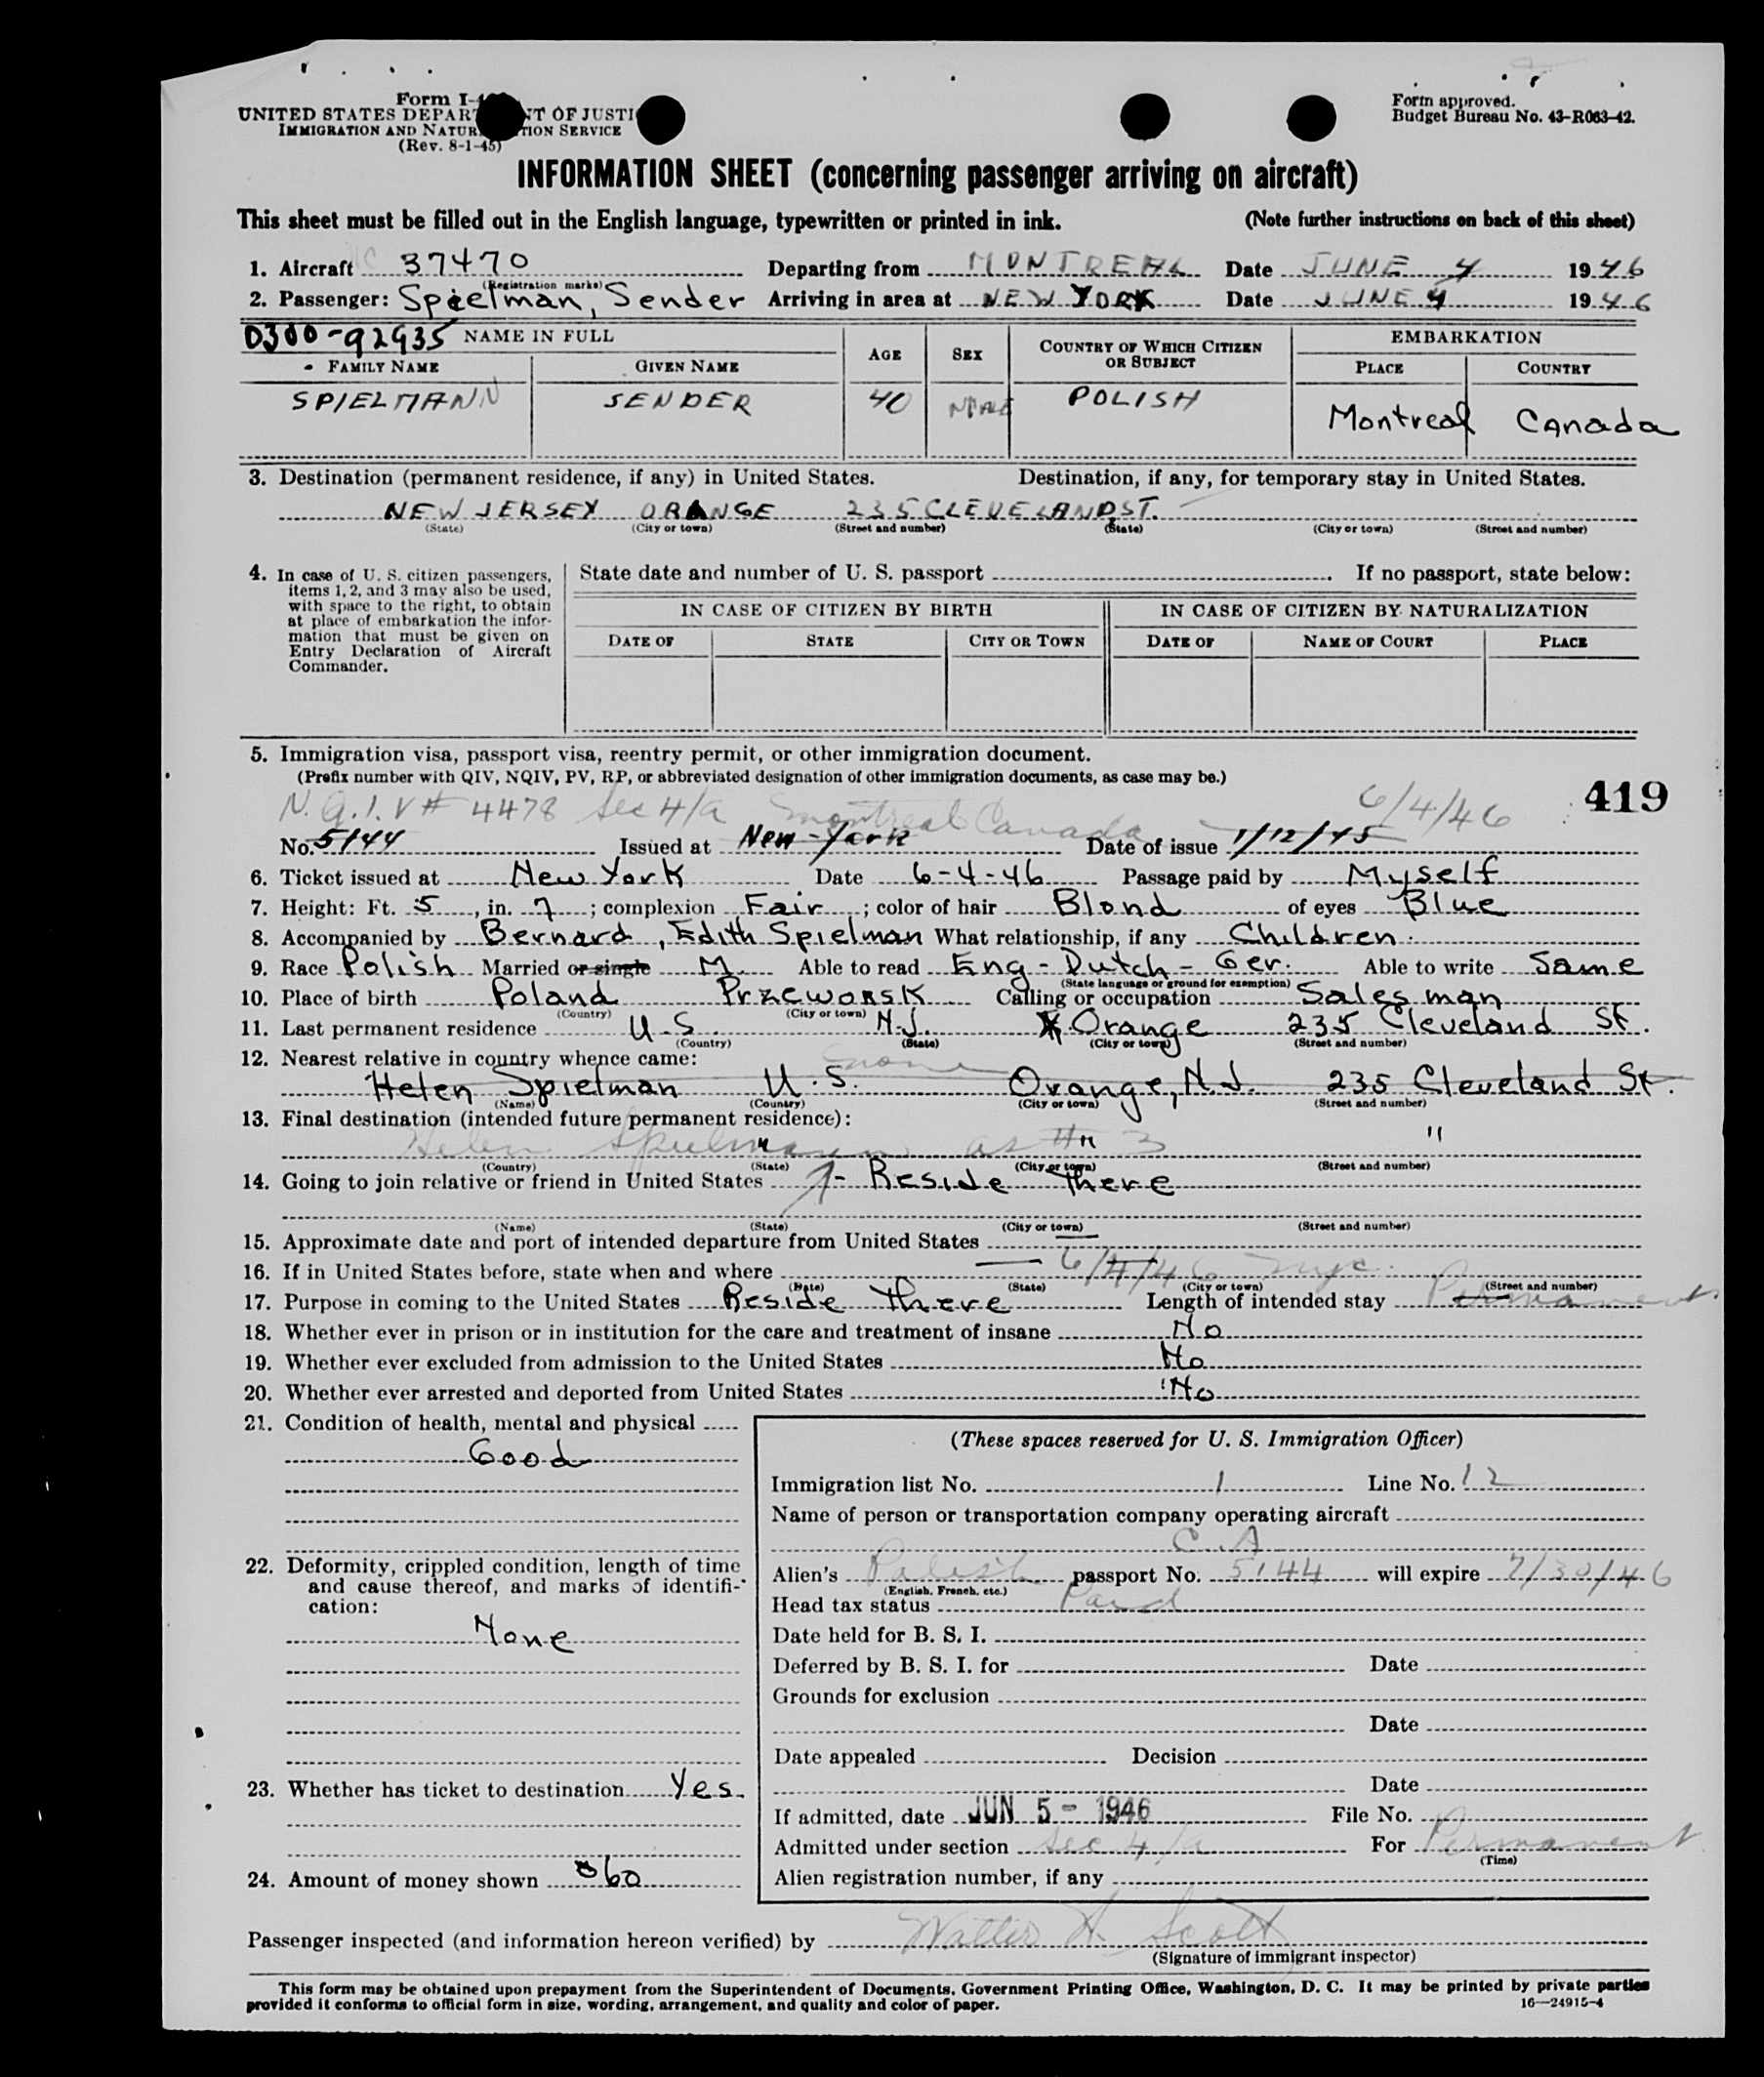 Form I-4
UNITED STATES DEPAR NT OF JUSTI
IMMIGRATION AND NATUR TION SERVICE
(Rev. 8-1-45)
Form approved.
Budget Bureau No. 43-R063-42.
INFORMATION SHEET (concerning passenger arriving on aircraft)
This sheet must be filled out in the English language, typewritten or printed in ink. (Note further instructions on back of this sheet)
1. Aircraft NC 37470 Departing from MONTREAL Date JUNE 4 1946
(Registration marks)
2. Passenger: Spielman, Sender Arriving in area at NEW YORK Date JUNE 4 1946
0300-92935 NAME IN FULL AGE SEX COUNTRY OF WHICH CITIZEN OR SUBJECT EMBARKATION
FAMILY NAME GIVEN NAME PLACE COUNTRY
SPIELMANN SENDER 40 MALE POLISH Montreal Canada
3. Destination (permanent residence, if any) in United States. Destination, if any, for temporary stay in United States.
NEW JERSEY ORANGE 235 CLEVELAND ST.
(State) (City or town) (Street and number) (State) (City or town) (Street and number)
4. In case of U. S. citizen passengers, items 1, 2, and 3 may also be used, with space to the right, to obtain at place of embarkation the information that must be given on Entry Declaration of Aircraft Commander.
State date and number of U. S. passport . If no passport, state below:
IN CASE OF CITIZEN BY BIRTH IN CASE OF CITIZEN BY NATURALIZATION
DATE OF STATE CITY OR TOWN DATE OF NAME OF COURT PLACE
5. Immigration visa, passport visa, reentry permit, or other immigration document.
(Prefix number with QIV, NQIV, PV, RP, or abbreviated designation of other immigration documents, as case may be.)
419
N.Q.I.V # 4478 Sec 4/a Montreal Canada 6/4/46
No. 5144 Issued at New-York Date of issue 1/12/45
6. Ticket issued at New York Date 6-4-46 Passage paid by Myself
7. Height: Ft. 5, in. 7; complexion Fair; color of hair Blond of eyes Blue
8. Accompanied by Bernard, Edith Spielman What relationship, if any Children.
9. Race Polish Married or single M. Able to read Eng - Dutch - Ger. Able to write Same
(State language or ground for exemption)
10. Place of birth Poland Przeworsk Calling or occupation Salesman
(Country) (City or town)
11. Last permanent residence U.S. N.J. Orange 235 Cleveland St.
(Country) (State) (City or town) (Street and number)
12. Nearest relative in country whence came: none
Helen Spielman U.S. Orange, N.J. 235 Cleveland St.
(Name) (Country) (City or town) (Street and number)
13. Final destination (intended future permanent residence):
Helen Spielmann " as # 3 " "
(Country) (State) (City or town) (Street and number)
14. Going to join relative or friend in United States - Reside there
(Name) (State) (City or town) (Street and number)
15. Approximate date and port of intended departure from United States —
16. If in United States before, state when and where — 6/4/46 nyc.
(Date) (State) (City or town) (Street and number)
17. Purpose in coming to the United States Reside there Length of intended stay Permanent
18. Whether ever in prison or in institution for the care and treatment of insane No
19. Whether ever excluded from admission to the United States No
20. Whether ever arrested and deported from United States No
21. Condition of health, mental and physical
Good
22. Deformity, crippled condition, length of time and cause thereof, and marks of identification:
None
23. Whether has ticket to destination Yes.
24. Amount of money shown 60
(These spaces reserved for U. S. Immigration Officer)
Immigration list No. 1 Line No. 12
Name of person or transportation company operating aircraft
C.A
Alien's Polish passport No. 5144 will expire 7/30/46
(English, French, etc.)
Head tax status Paid
Date held for B. S. I.
Deferred by B. S. I. for Date
Grounds for exclusion
Date
Date appealed Decision
Date
If admitted, date JUN 5 - 1946 File No.
Admitted under section Sec 4/a For Permanent
(Time)
Alien registration number, if any
Passenger inspected (and information hereon verified) by Walter A. Scott
(Signature of immigrant inspector)
This form may be obtained upon prepayment from the Superintendent of Documents, Government Printing Office, Washington, D. C. It may be printed by private parties
provided it conforms to official form in size, wording, arrangement, and quality and color of paper. 16—24915-4